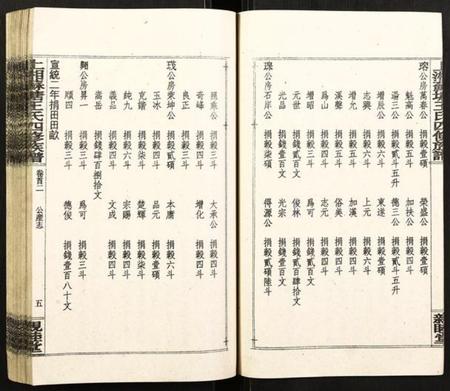 瑢公房萬春公 捐穀壹碩 榮盛公 捐穀四斗
魁高公 捐穀四斗 加扶公 捐穀四斗
湯三公 捐穀貳斗五升 德三公 捐穀貳斗五升
增辰公 捐穀六斗 東遂 捐穀壹碩
志興 捐穀六斗 上元 捐穀六斗
增九 捐穀四斗 加漢 捐穀四斗
漢聲 捐穀四斗 俗美 捐穀四斗
爲山 捐穀四斗 志元 捐穀四斗
增昭 捐穀四斗 爲可 捐穀四斗
元世 捐穀貳碩 俊林 捐錢貳百肆拾文
光昌 捐錢壹百文 光宗 捐錢壹百文
公房石岸公 捐穀壹碩 得源公 捐穀貳碩陸斗
捐穀三斗 大承公 捐穀四斗
奇璹 捐穀三斗 增化 捐穀四斗
良正 捐穀三斗
公房東坤公 捐穀貳碩 本唐 捐穀六斗
玉冰 捐穀四斗 品元 捐穀壹碩
克鍇 捐穀柒斗 楚輝 捐穀柒斗
純九 捐穀六斗 宗賜 捐穀四斗
義品 捐穀四斗 文成 捐穀四斗
嵩岳 捐錢肆百捌拾文
公房昇一 捐穀三斗 爲可 捐穀三斗
順四 捐穀三斗 德俊 捐錢壹百八十文
宣統二年捐田畝
上湘
王氏四修族譜
卷首二 公產志
五
親睦堂